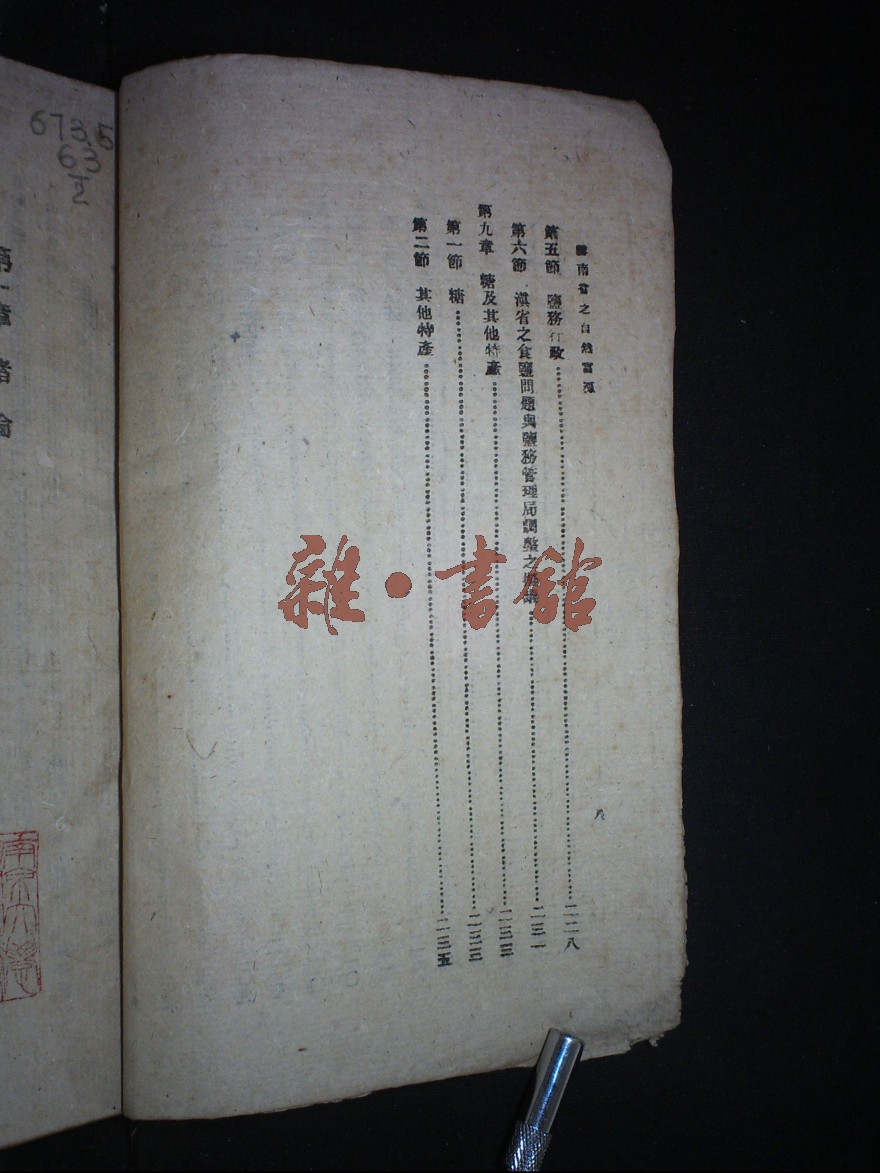 雲南省之自然富源
八
第五節 鹽務行政……二二八
第六節 滇省之食鹽問題與鹽務管理局調整之……二三一
第九章 糖及其他特產……二三三
第一節 糖……二三三
第二節 其他特產……二三五
雜・書館
673.5
63
2
第一章 緒論
南京大學